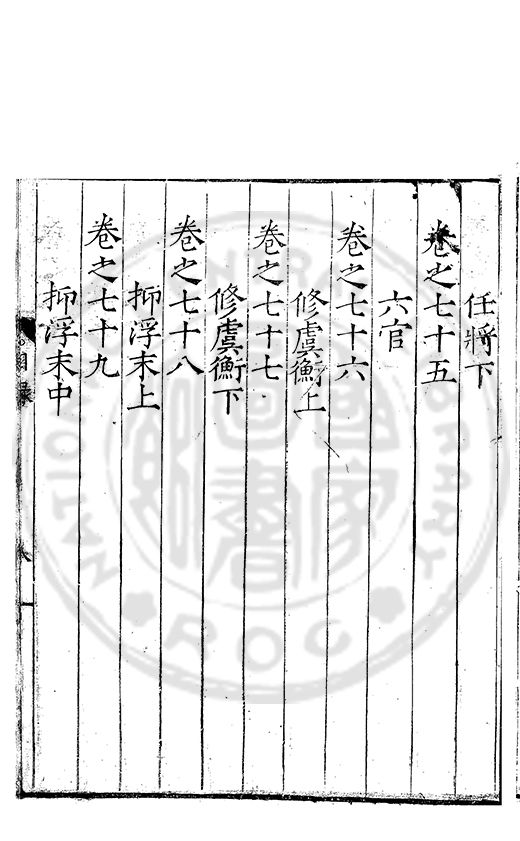 任將下
卷之七十五
六官
卷之七十六
修虞衡上
卷之七十七
修虞衡下
卷之七十八
抑浮末上
卷之七十九
抑浮末中
目錄